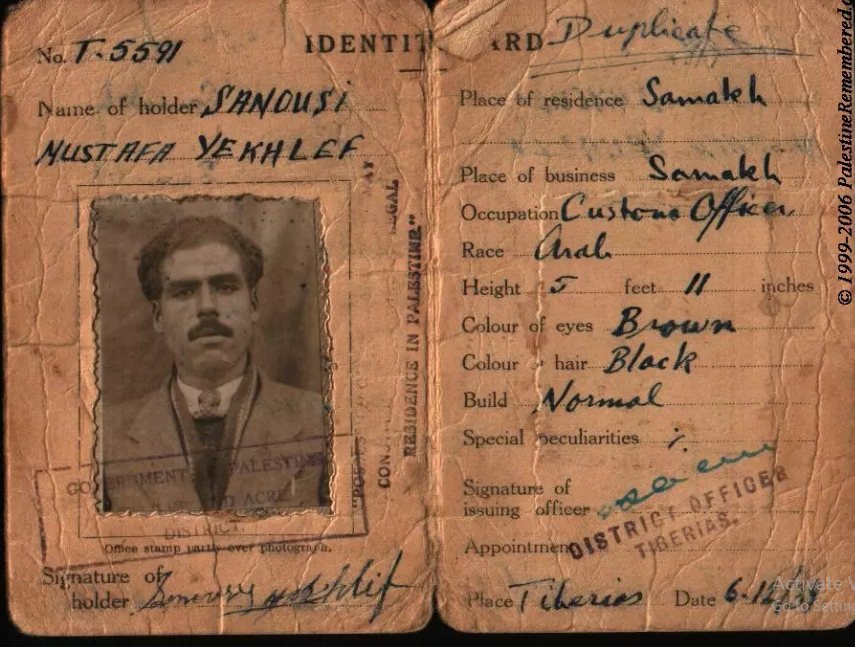 No. T-5591
Name of holder SANOUSI
MUSTAFA YEKHLEF
RESIDENCE IN PALESTINE."
GOVERNMENT PALESTINE
AND ACRE
DISTRICT.
Office stamp partly over photograph.
Signature of
holder
IDENTIT ARD Duplicate
Place of residence Samakh
Place of business Samakh
Occupation Customs Officer.
Race Arab
Height 5 feet 11 inches
Colour of eyes Brown
Colour of hair Black
Build Normal
Special peculiarities
Signature of
issuing officer
Appointment DISTRICT OFFICER
TIBERIAS.
Place Tiberias Date 6-12/
© 1999-2006 PalestineRemembered.c
Activate
Go to Setting